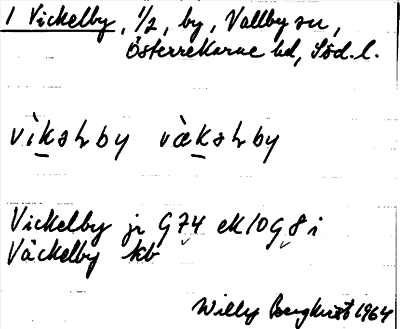 1 Vickelby, 1/2, by, Vallby sn,
Österrekarne hd, Söd. l.
vìkəɫby vækəɫby
Vickelby jr G74 ek 10 G8 i
Väckelby kb
Willy Bergkvist 1964